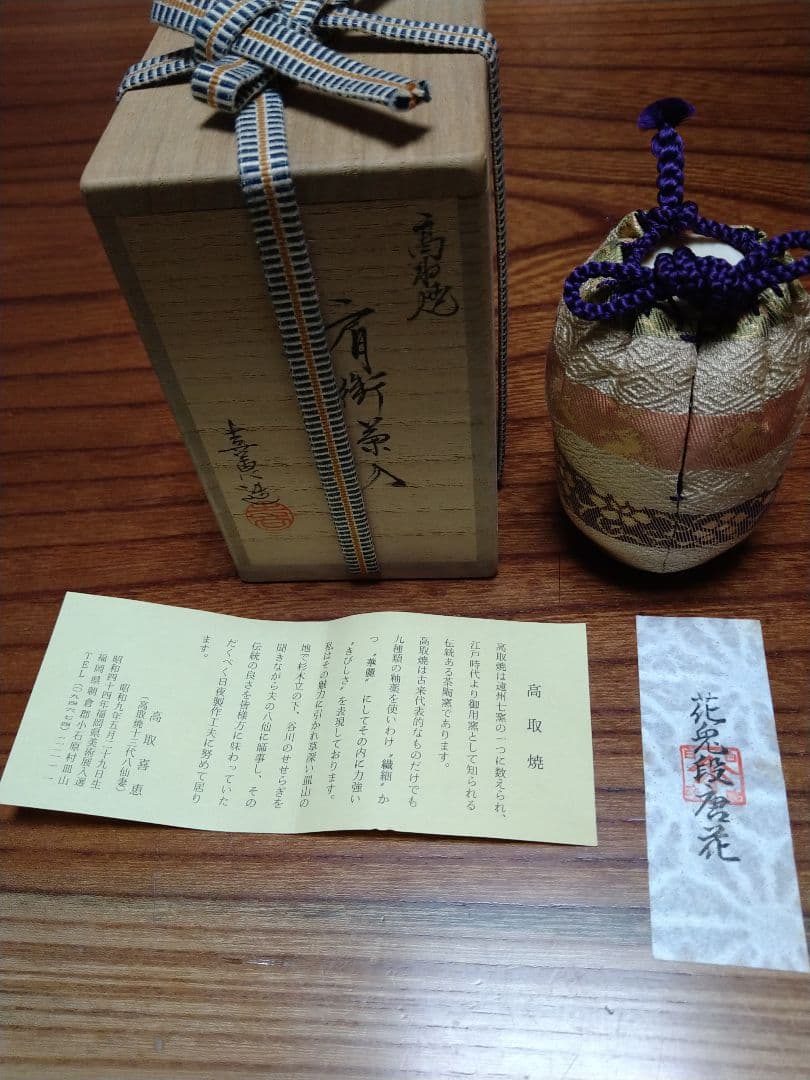 高取焼
肩衝茶入
喜恵造
高取焼
高取焼は遠州七窯の一つに数えられ、
江戸時代より御用窯として知られる
伝統ある茶陶窯であります。
高取焼は古来代表的なものだけでも
九種類の釉薬を使いわけ〝繊細〟か
つ〝華麗〟にしてその内に力強い
〝きびしさ〟を表現しております。
私はその魅力に引かれ草深い皿山の
地で杉木立の下、谷川のせせらぎを
聞きながら夫の八仙に師事し、その
伝統の良さを皆様方に味わっていた
だくべく日夜製作工夫に努めて居り
ます。
高取喜恵
（高取焼十三代八仙妻）
昭和九年五月二十九日生
昭和四十四年福岡県美術展入選
福岡県朝倉郡小石原村皿山
花兎段唐花